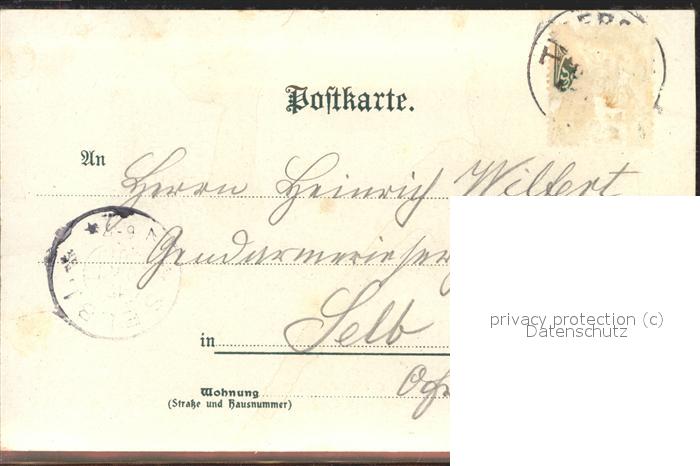 Postkarte.
An Herrn Heinrich Wilfert
Gendarmerieser
in Selb
Wohnung
(Straße und Hausnummer)
SELB 1
privacy protection (c)
Datenschutz